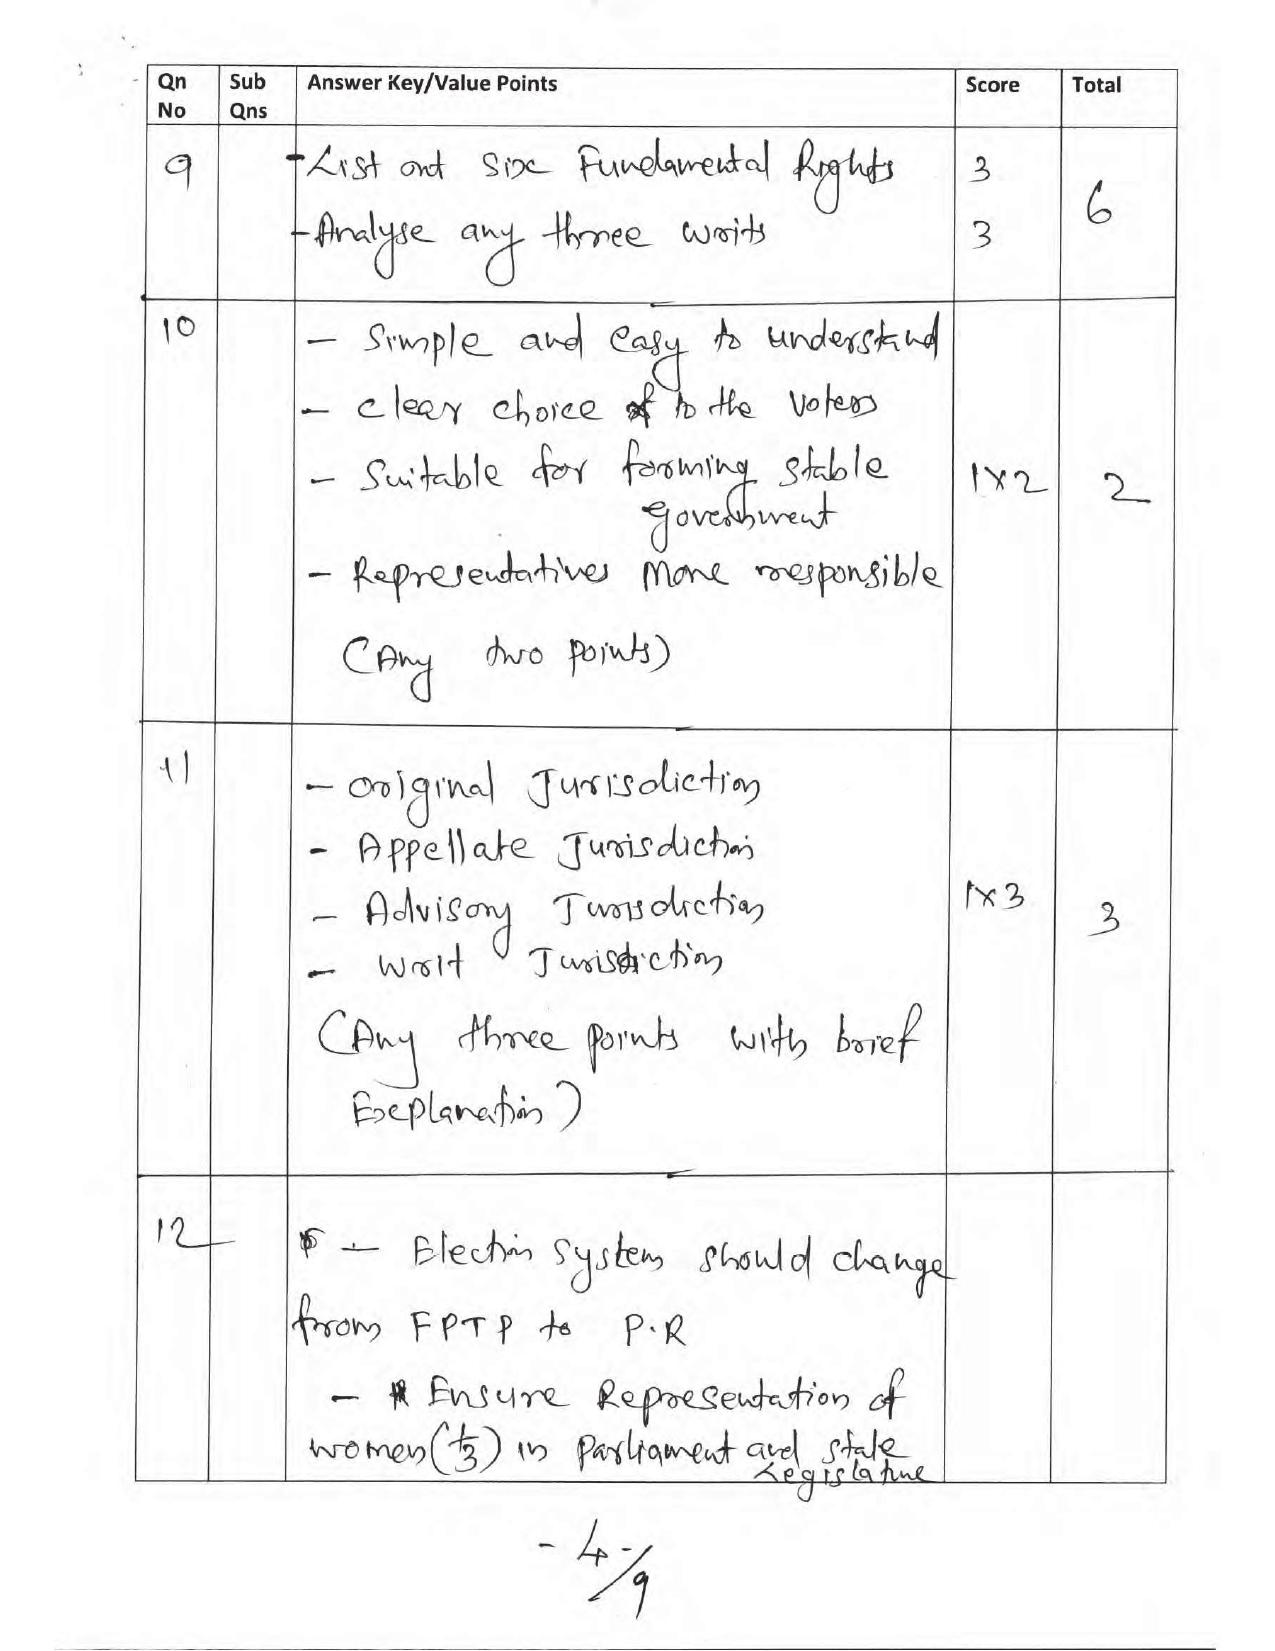 Qn No Sub Qns Answer Key/Value Points Score Total
9 - List out six Fundamental Rights 3
6
- Analyse any three writs 3
10 - Simple and easy to understand
- clear choice to the voters
- Suitable for forming stable 1x2 2
government
- Representatives more responsible
(Any two points)
11 - Original Jurisdiction
- Appellate Jurisdiction
- Advisory Jurisdiction 1x3 3
- Writ Jurisdiction
(Any three points with brief
Explanation)
12 - Election system should change
from FPTP to P.R
- Ensure Representation of
women (1/3) in Parliament and state
Legislature
- 4/9 -